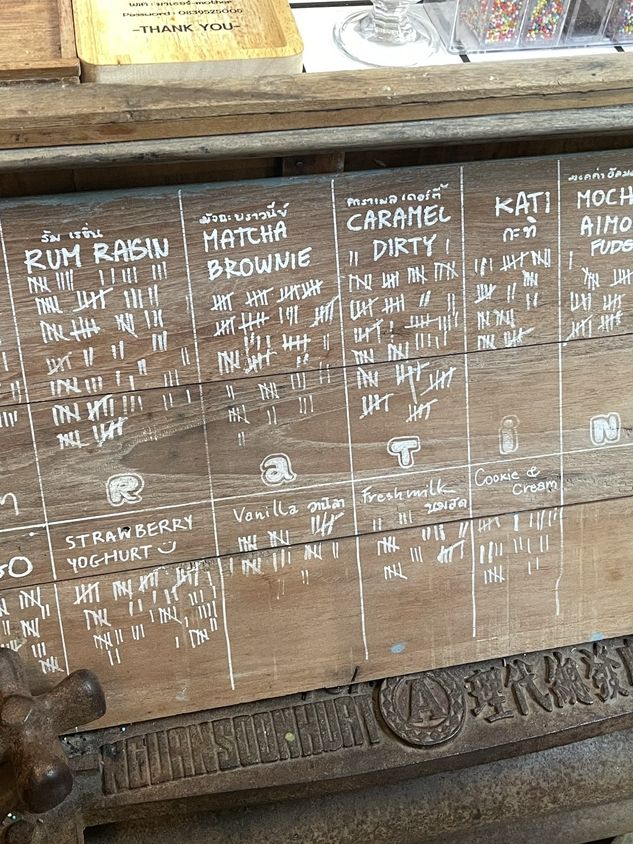 Password : 0839525005
-THANK YOU-
รัม เรซิ่น
RUM RAISIN
มัจฉะ บราวนี่ย์
MATCHA
BROWNIE
คาราเมล เดอร์ตี้
CARAMEL
DIRTY
KATI
กะทิ
MOCH
FUDG
R
a
T
i
N
STRAWBERRY
YOGHURT
Vanilla วานิลา
Freshmilk
นมสด
Cookie &
Cream
NGUAN SOON HUAT
A
理代總發